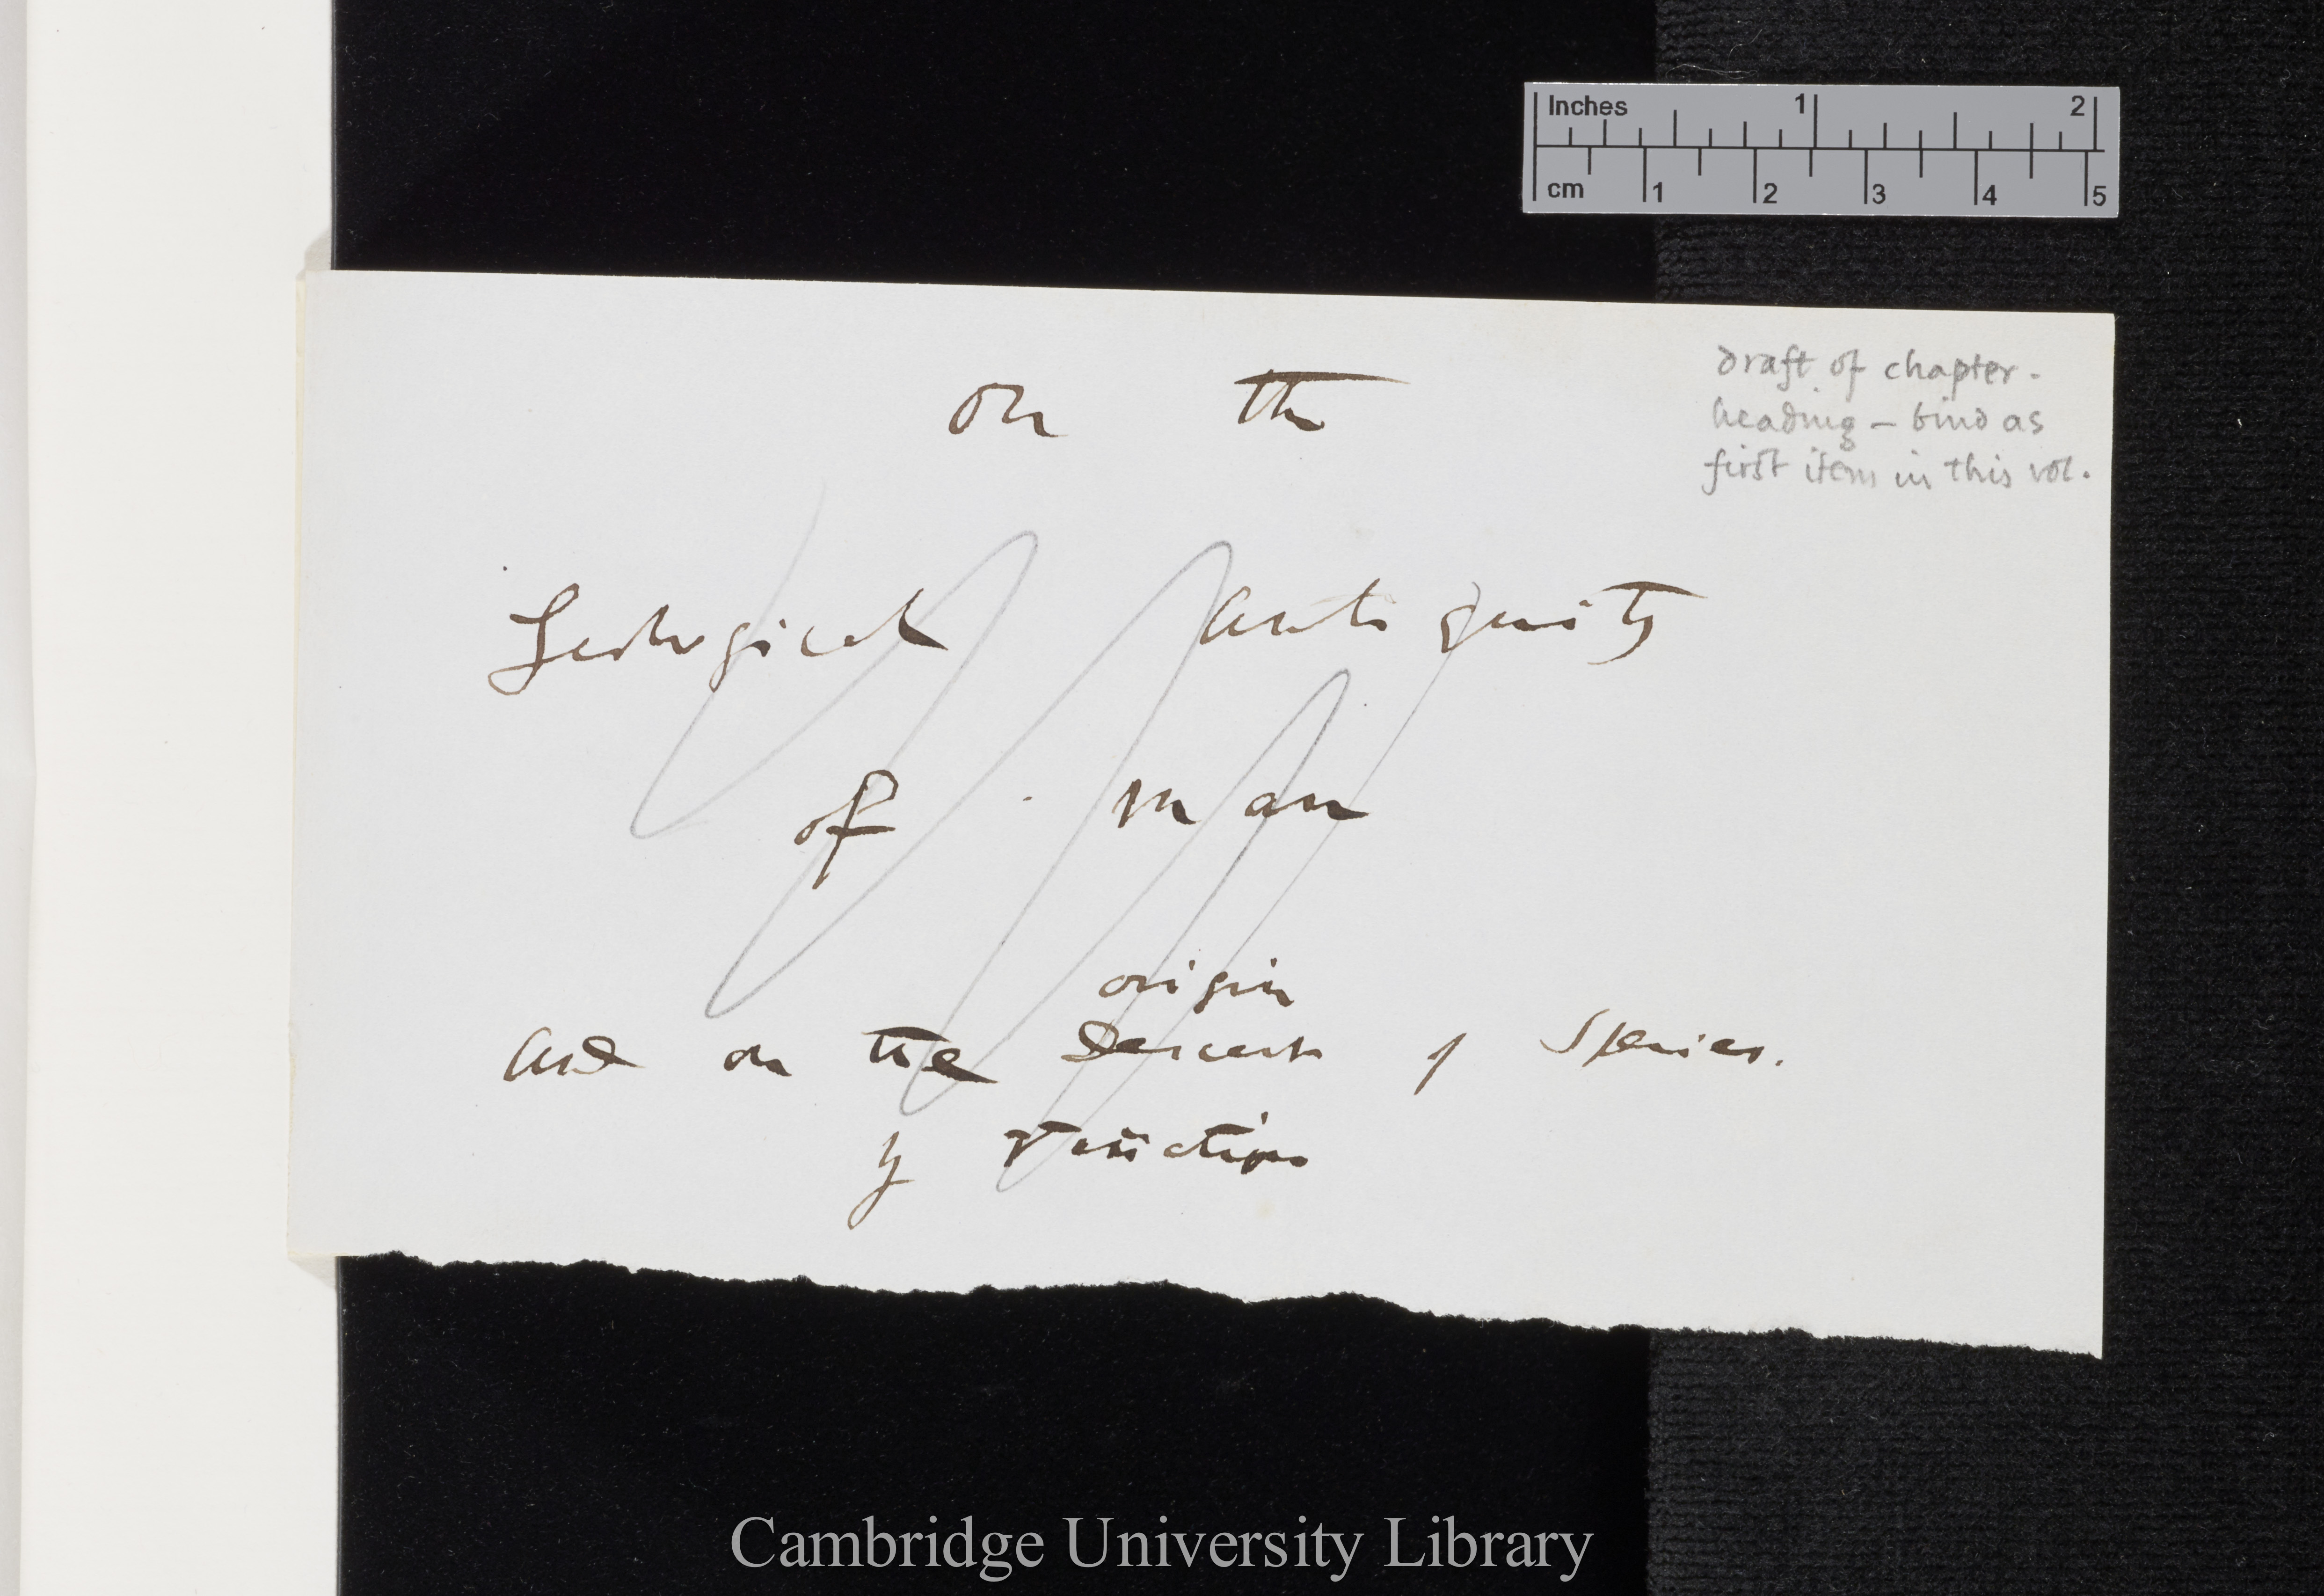 Inches 1 2
cm 1 2 3 4 5
draft of chapter-
heading - bind as
first item in this vol.
On the
Geological Antiquity
of man
origin
and on the Descent of Species.
by Variation
Cambridge University Library